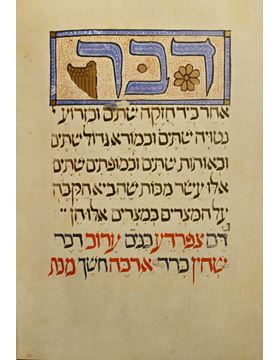 דבר
אחר ביד חזקה שתים ובזרוע
נטויה שתים ובמורא גדול שתים
ובאותות שתים ובמופתים שתים
אלו עשר מכות שהביא הקבה
על המצרים במצרים אלו הן
דם צפרדע כנים ערוב דבר
שחין ברד ארבה חשך מכת